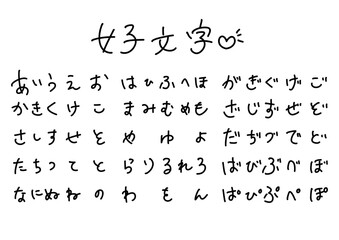 女子文字♡
あいうえお はひふへほ がぎぐげご
かきくけこ まみむめも ざじずぜぞ
さしすせそ や ゆ よ だぢづでど
たちつてと らりるれろ ばびぶべぼ
なにぬねの わ も ん ぱぴぷぺぽ